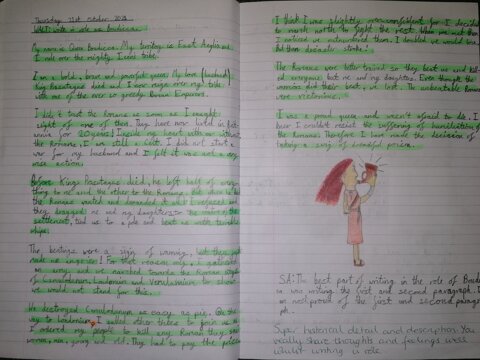 Thursday 21st October 2021
WALT: write in role as Boudicca.
My name is Queen Boudicca. My territory is East Anglia and
I rule over the mighty Iceni tribe.
I am a bold, brave and powerful queen. My love (husband)
King Prasutagus died and I now reign over my tribe
with one of the ever so greedy Roman Emperors.
I did trust the Romans as soon as I caught
sight of one of them. They have now lived in
for years! Inside my heart with me
the Romans, I am still a Celt. I did not start a
war for my husband and I felt it was not a very
wise action.
Before King Prasutagus died, he left half of every-
thing to me and the other to the Romans. But
the Romans wanted and demanded it all! I refused and
they dragged me and my daughters to the centre of the
settlement, tied us to a pole and beat us with terrible
whips.
The beatings were a sign of warning, but they just
made me angrier! For that reason only, I gathered
an army, and we marched towards the Roman
of Camulodunum, Londinium and Verulamium to show
we would not stand for this.
We destroyed Camulodunum as easy as pie. On the
way to Londinium, I asked other tribes to join us
I ordered my people to kill any Roman they
women, men, young and old. They had to pay the price
I think I was slightly overconfident for I decided
to march north to fight the rest. When we met them
I noticed we outnumbered them. I decided we would
that than decimate strike!
The Romans were better trained so they beat us and kill-
ed everyone but me and my daughters. Even though the
warriors did their best, we lost. The unbeatable Romans
were victorious.
I was a proud queen and wasn't afraid to die.
I couldn't resist the suffering of humiliation of
the Romans. Therefore I have made the decision of
taking a swig of dreadful poison.
SA: The best part of writing in the role of Boudic-
ca was writing the first and second paragraph. I
am most proud of the first and second paragra-
ph.
Super historical detail and description. You
really share thoughts and feelings well
whilst writing in role.